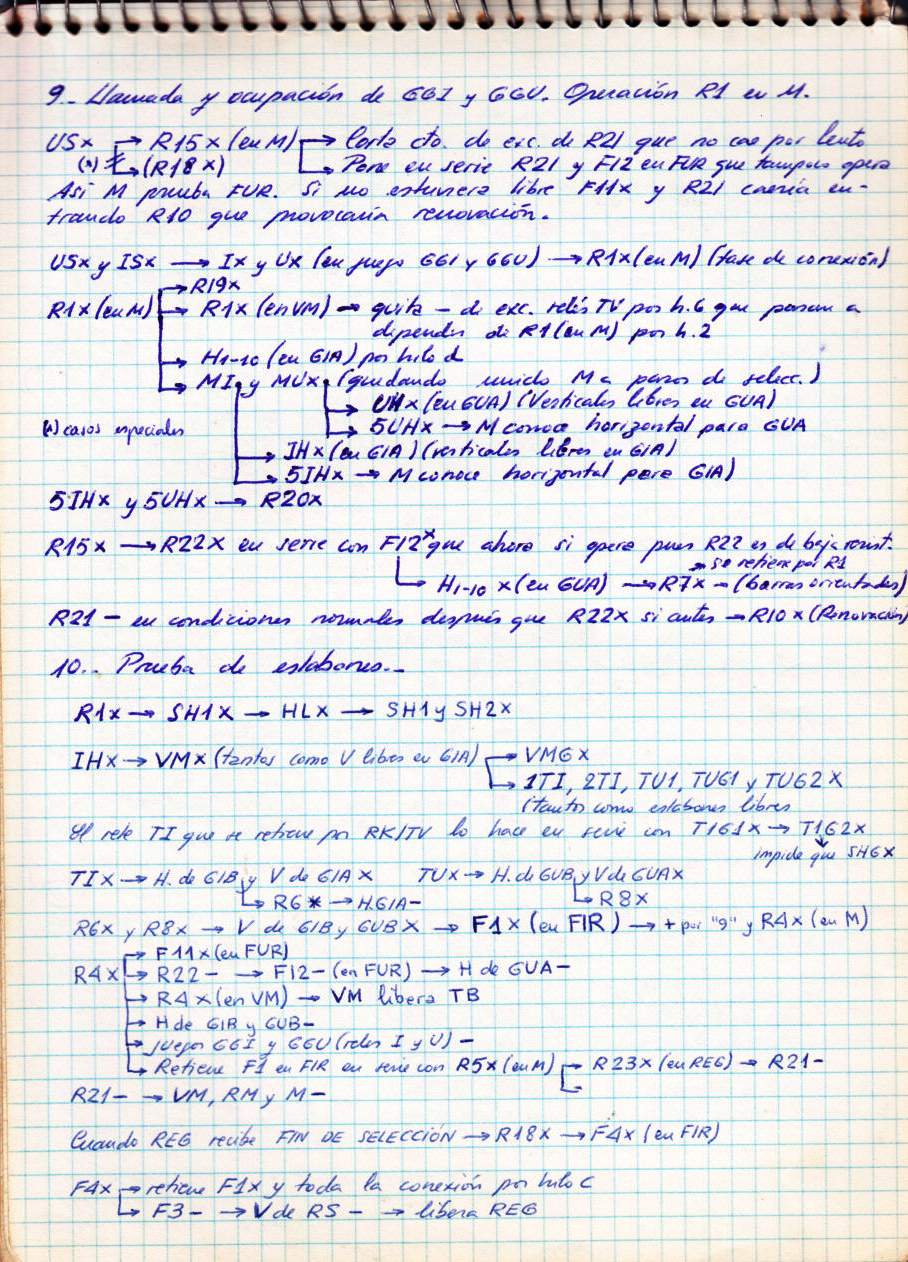 9.- Llamada y ocupación de GGI y GGU. Operación R1 en M.
USx → R15x (en M) → Corta cto. de exc. de R21 que no cae por lento
(*) → (R18x) → Pone en serie R21 y F12 en FUR que tampoco opera
Así M prueba FUR. Si no estuviera libre F11x y R21 caería en-
trando R10 que provocaría renovación.
USx y ISx → Ix y Ux (en juego GGI y GGU) → R1x (en M) (fase de conexión)
→ R19x
R1x (en M) → R1x (en VM) → quita - de exc. relés TV por h.6 que pasan a
depender de R1 (en M) por h.2
→ H1-10 (en GIA) por hilo d
→ MI y MUx (quedando unido M a pasos de selecc.)
→ UHx (en GUA) (Verticales libres en GUA)
(*) casos especiales → 5UHx → M conoce horizontal para GUA
→ IHx (en GIA) (verticales libres en GIA)
→ 5IHx → M conoce horizontal para GIA)
5IHx y 5UHx → R20x
R15x → R22x en serie con F12x que ahora si opera pues R22 es de baja resist.
→ se retiene por R1
→ H1-10 x (en GUA) → R7x - (barras orientadas)
R21 - en condiciones normales después que R22x si antes → R10x (Renovación)
10.- Prueba de eslabones.-
R1x → SH1x → HLx → SH1 y SH2x
IHx → VMx (tantos como V libres en GIA) → VMGx
→ 1TI, 2TI, TU1, TUG1 y TUG2x
(tantos como eslabones libres
El relé TI que se retiene por RKITV lo hace en serie con T1G1x → T1G2x
impide que SHGx
TIx → H. de GIB y V de GIAx TUx → H. de GUB y V de GUAx
→ R6x → H.GIA- → R8x
R6x y R8x → V de GIB y GUBx → F1x (en FIR) → + por "9" y R4x (en M)
→ F11x (en FUR)
R4x → R22 - → F12 - (en FUR) → H de GUA -
→ R4x (en VM) → VM libera TB
→ H de GIB y GUB -
→ juegos GGI y GGU (relés I y U) -
→ Retiene F1 en FIR en serie con R5x (en M) → R23x (en REG) → R21 -
R21 - → VM, RM y M -
Cuando REG recibe FIN DE SELECCIÓN → R18x → F4x (en FIR)
F4x → retiene F1x y toda la conexión por hilo c
→ F3 - → V de RS - → libera REG